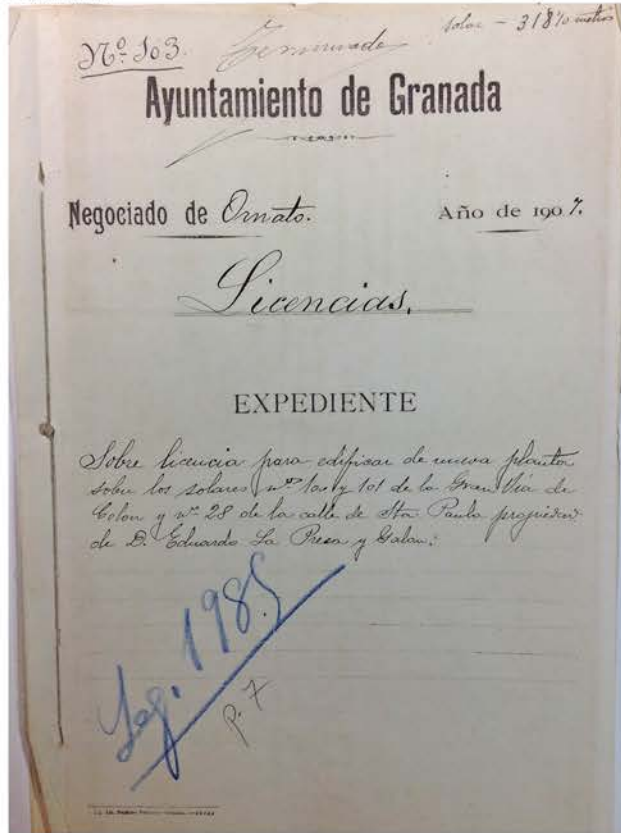 Nº 103. Terminado solar - 318'70 metros
Ayuntamiento de Granada
Negociado de Ornato. Año de 1907.
Licencias.
EXPEDIENTE
Sobre licencia para edificar de nueva planta
sobre los solares nos y 101 de la Gran Via de
Colon y nº 28 de la calle de Sta Paula propiedad
de D. Eduardo La Presa y Galan.
Leg. 1985
p. 7